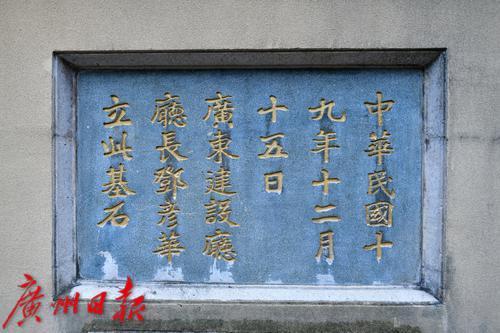 中華民國十
九年十二月
十五日
廣東建設廳
廳長鄧彦華
立此基石
广州日报